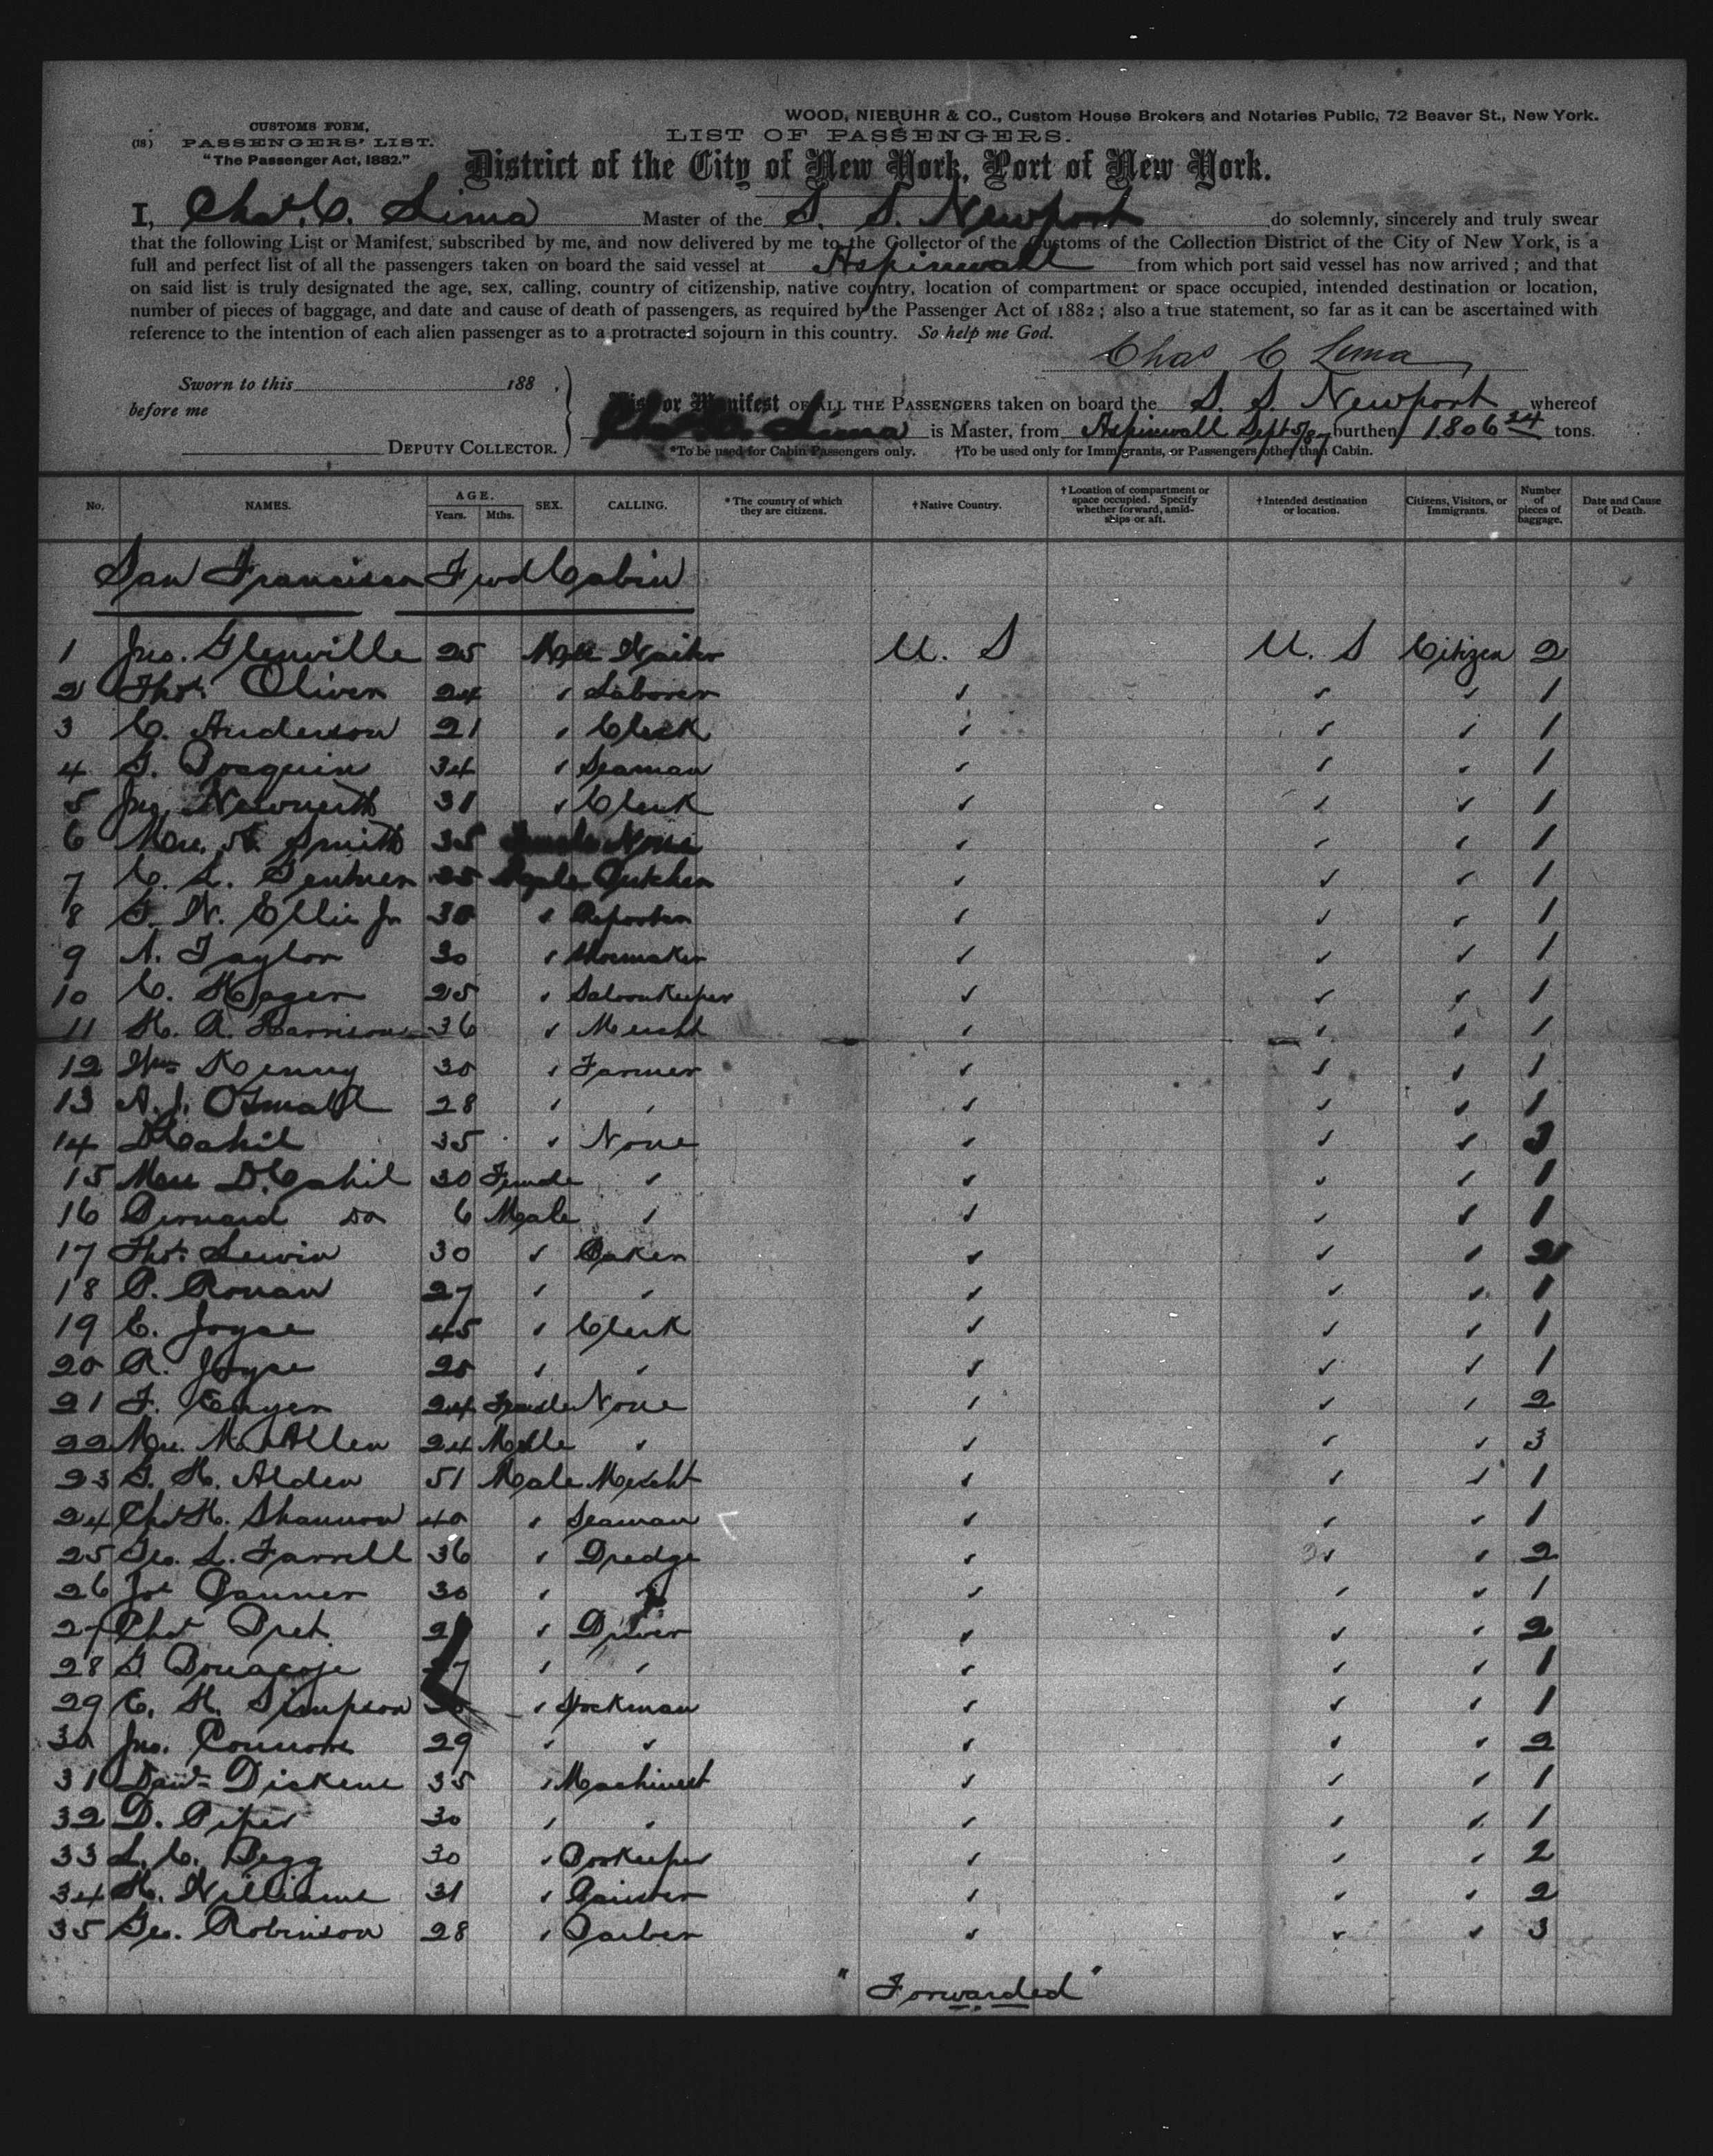 WOOD, NIEBUHR & CO., Custom House Brokers and Notaries Public, 72 Beaver St., New York.
CUSTOMS FORM,
(18) PASSENGERS' LIST.
"The Passenger Act, 1882."
LIST OF PASSENGERS.
District of the City of New York, Port of New York.
I, Chas. C. Lima Master of the S. S. Newport do solemnly, sincerely and truly swear
that the following List or Manifest, subscribed by me, and now delivered by me to the Collector of the Customs of the Collection District of the City of New York, is a
full and perfect list of all the passengers taken on board the said vessel at Aspinwall from which port said vessel has now arrived; and that
on said list is truly designated the age, sex, calling, country of citizenship, native country, location of compartment or space occupied, intended destination or location,
number of pieces of baggage, and date and cause of death of passengers, as required by the Passenger Act of 1882; also a true statement, so far as it can be ascertained with
reference to the intention of each alien passenger as to a protracted sojourn in this country. So help me God.
Chas C Lima
Sworn to this 188 .
before me
DEPUTY COLLECTOR.
List or Manifest OF ALL THE PASSENGERS taken on board the S. S. Newport whereof
Lima is Master, from Aspinwall Sept 5/87 burthen 1806 24 tons.
*To be used for Cabin Passengers only. †To be used only for Immigrants, or Passengers other than Cabin.
No. NAMES. AGE. Years. Mths. SEX. CALLING. *The country of which they are citizens. †Native Country. †Location of compartment or space occupied. Specify whether forward, amidships or aft. †Intended destination or location. Citizens, Visitors, or Immigrants. Number of pieces of baggage. Date and Cause of Death.
San Francisco Fwd Cabin
1 Jno. Glenville 25 Male U. S U. S Citizen 2
2 Thos. Oliver 24 " Laborer " " " 1
3 C. Anderson 21 " Clerk " " " 1
4 34 " Seaman " " " 1
5 Jno. 31 " Clerk " " " 1
6 Mrs. Smith 35 Female None " " " 1
7 C. L. Male Butcher " " " 1
8 Ellis Jr " Reporter " " " 1
9 A. Taylor 30 " Shoemaker " " " 1
10 C. Hager 25 " Saloonkeeper " " " 1
11 H. A. Harrison 36 " Mercht " " " 1
12 Wm Kenny 30 " Farmer " " " 1
13 A. J. 28 " " " " " 1
14 D Cahil 35 " None " " " 3
15 Mrs D. Cahil 30 Female " " " " 1
16 Bernard do 6 Male " " " " 1
17 Thos. Lewin 30 " Baker " " " 2
18 P. Ronan 27 " " " " " 1
19 C. Joyce 45 " Clerk " " " 1
20 A. Joyce " " " " " 1
21 F. 24 Female None " " " 2
22 Mrs. M. Allen 24 " " " " 3
23 G. H. Alden 51 Male Mercht " " " 1
24 Chas H. Shannon 40 " Seaman " " " 1
25 Geo. L. Farrell 36 " Dredge " " " 2
26 Jos 30 " " " " " 1
27 Chas " Driver " " " 2
28 G 27 " " " " " 1
29 C. H. Simpson " Stockman " " " 1
30 Jno. Connors 29 " " " " " 2
31 Danl Dickens 35 " Machinest " " " 1
32 D. Piper 30 " " " " " 1
33 L. C. Begg 30 " Bookeeper " " " 2
34 H. Williams 31 " Painter " " " 2
35 Geo. Robinson 28 " Barber " " " 3
"Forwarded"